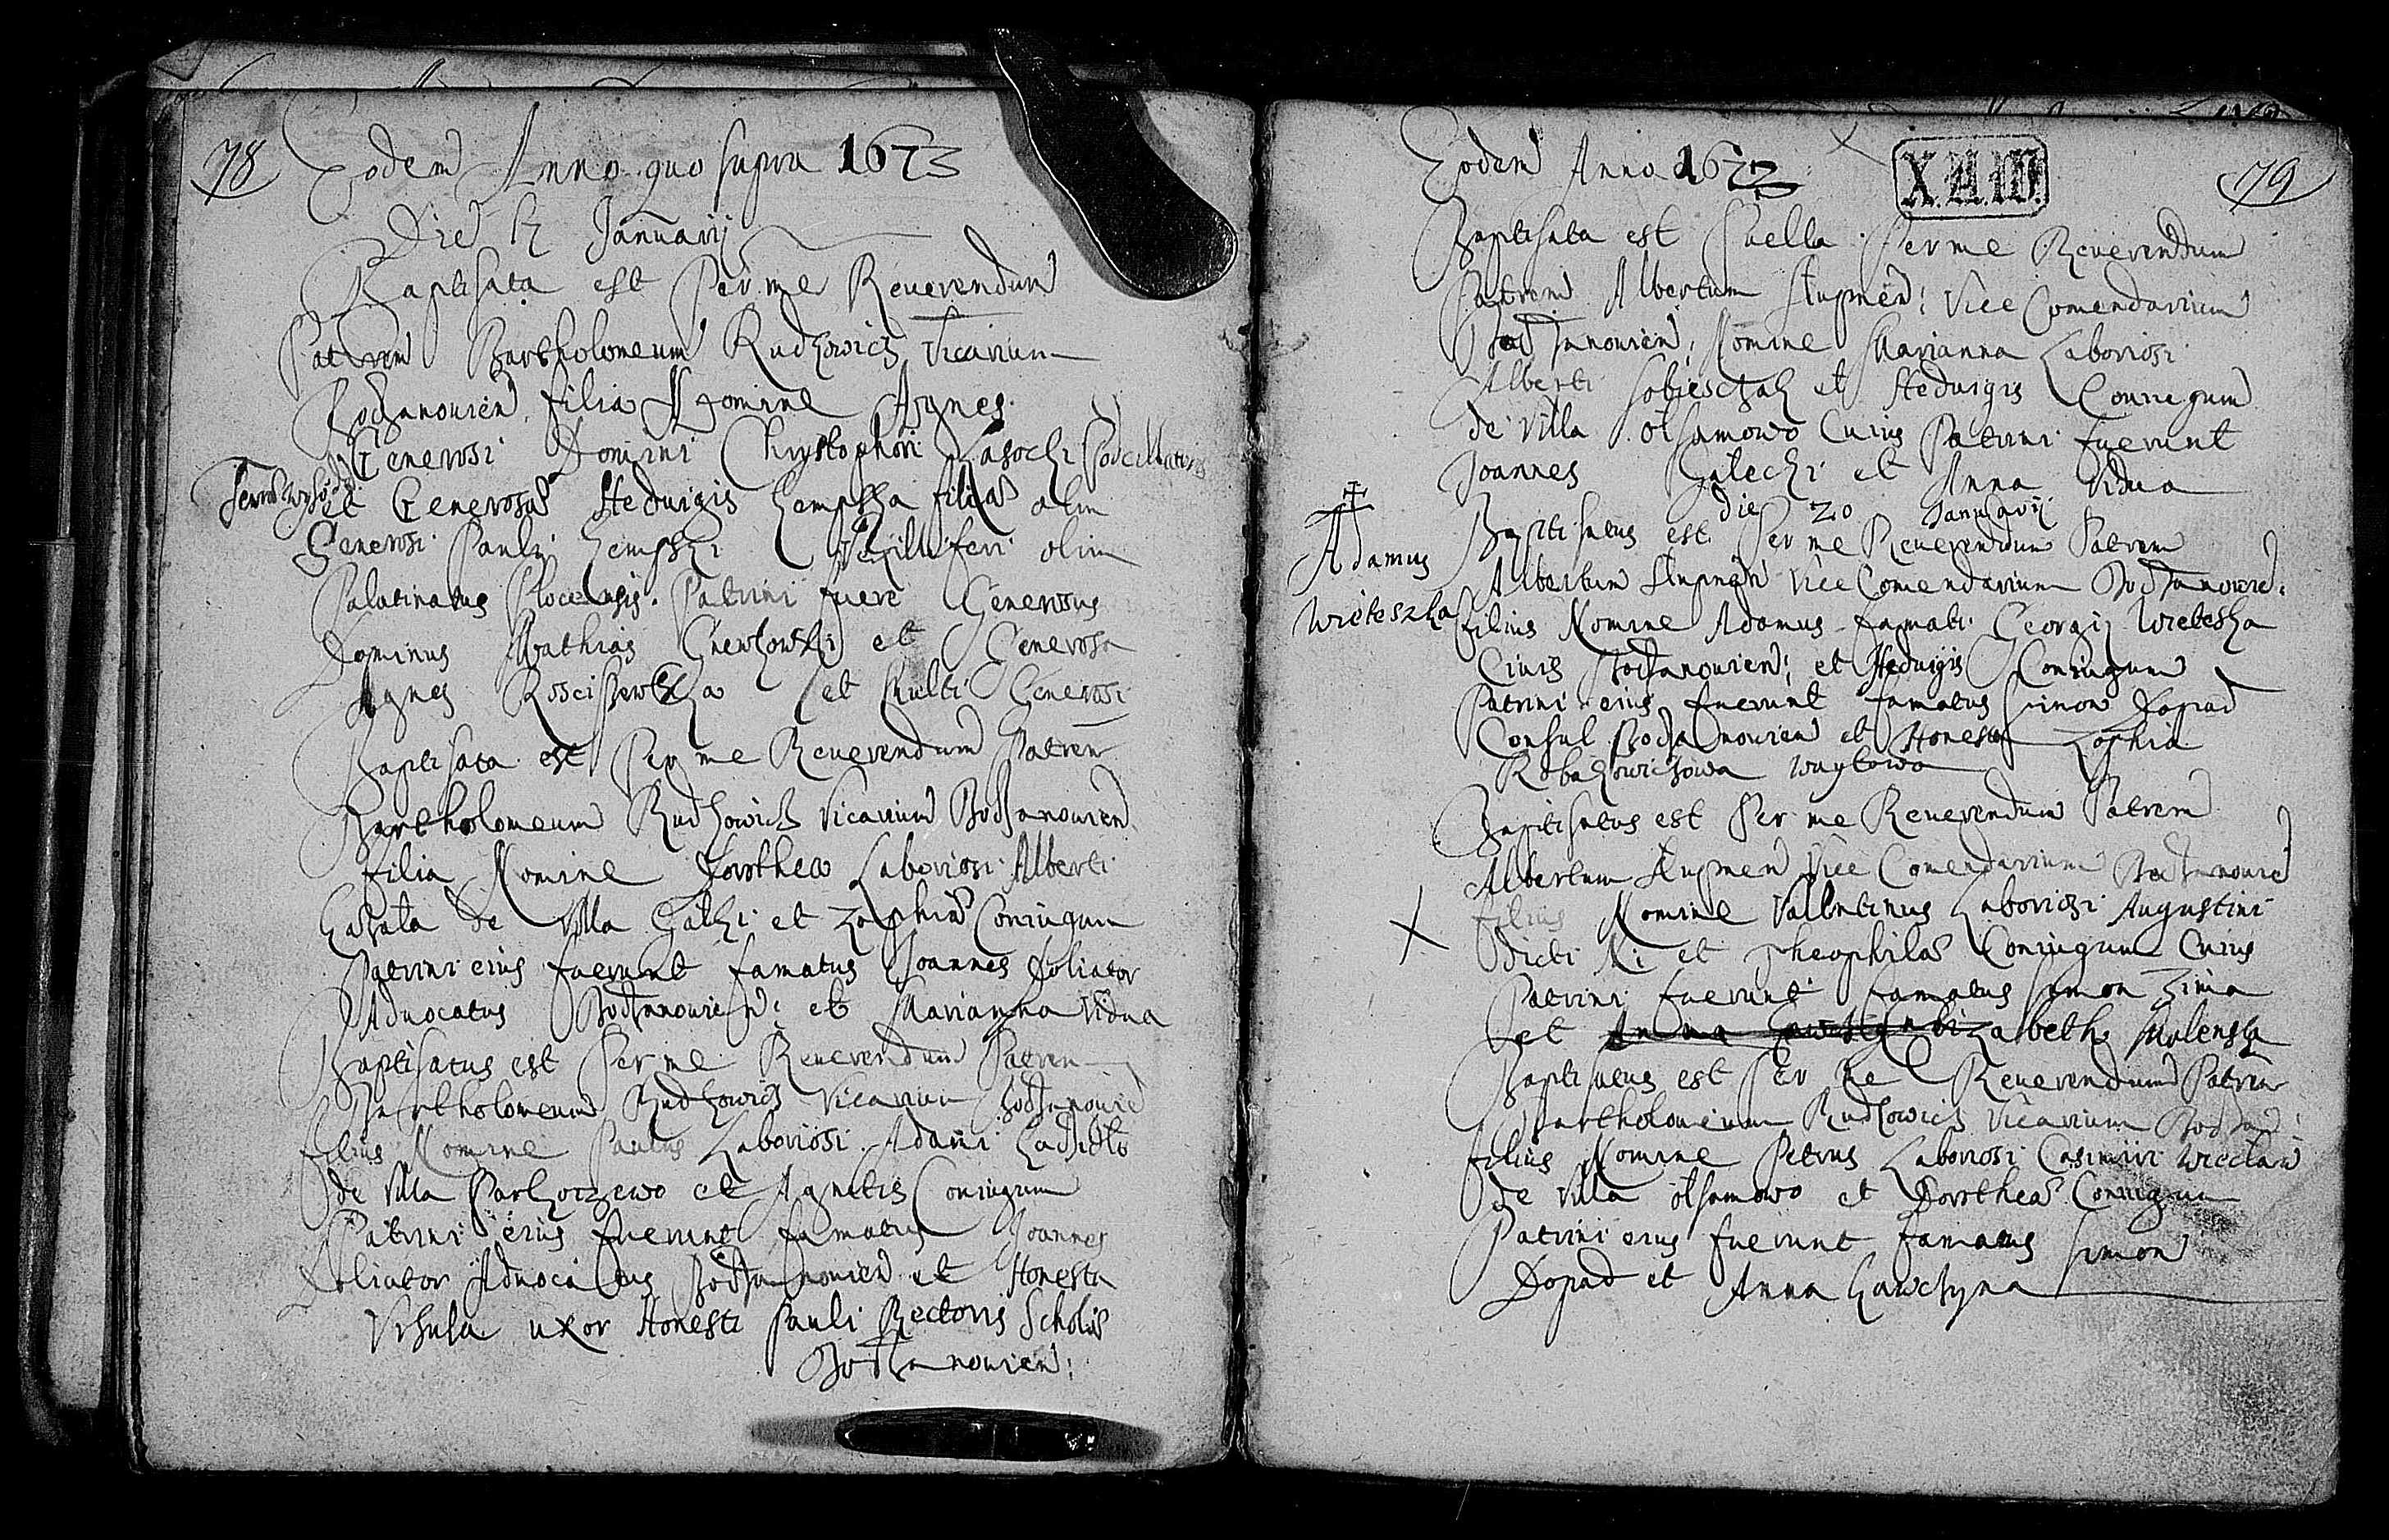 78
Eodem Anno quo supra 1673
Die Januarij
Baptisata est Per me Reuerendum
Patrem Bartholomeum Rudkowich Vicarium
Bodzanouien, filia Nomine Agnes
Generosi Domini Chrystophori Lasocki
et Generosa Heduigis Kempska filia olim
Generosi Pauli Kempski Vexilliferi olim
Palatinatus Plocensis. Patrini fuere Generosus
Dominus Mathias et Generosa
Agnes Roscissewska et Multi Generosi
Baptisata est Per me Reuerendum Patrem
Bartholomeum Rudkowich Vicarium Bodzanouien
filia Nomine Dorothea Laboriosi Alberti
de Villa et Zophia Coniugum
Patrini eius fuerunt famatus Joannes Doliator
Aduocatus Bodzanouien: et Marianna Vidua
Baptisatus est Per me Reuerendum Patrem
Bartholomeum Rudkowich Vicarium Bodzanouie
filius Nomine Paulus Laboriosi Adami
de Villa et Agnetis Coniugum
Patrini eius fuerunt famatus Joannes
Doliator Aduocatus Bodzanouien et Honesta
Vrsula uxor Honesti Pauli Rectoris Scholis
Bodzanouien:
Eodem Anno 1673
79
Baptisata est Puella Per me Reuerendum
Patrem Albertum Stupmen: Vice Comendarium
Bodzanouien: Nomine Marianna Laboriosi
Alberti et Heduigis Coniugum
de Villa Cuius Patrini fuerunt
Joannes et Anna Vidua
die 20 Januarij
Baptisatus est Per me Reuerendum Patrem
Adamus
Albertum Stupmen Vice Comendarium Bodzanouie:
Wieteszka
filius Nomine Adamus famati Georgij Wieteska
Ciuis Bodzanouien: et Heduigis Coniugum
Patrini eius fuerunt famatus Simon Dopad
Consul Bodzanouien et Honesta Zophia
Woytowa
Baptisatus est Per me Reuerendum Patrem
Albertum Stupmen Vice Comendarium Bodzanouie
filius Nomine Vallentinus Laboriosi Augustini
dicti et Theophila Coniugum Cuius
Patrini fuerunt famatus Simon Zima
et
Baptisatus est Per me Reuerendum Patrem
Bartholomeum Rudkowich Vicarium Bodzano:
filius Nomine Petrus Laboriosi Casimiri
de Villa et Dorothea Coniugum
Patrini eius fuerunt famatus Simon
Dopad et Anna